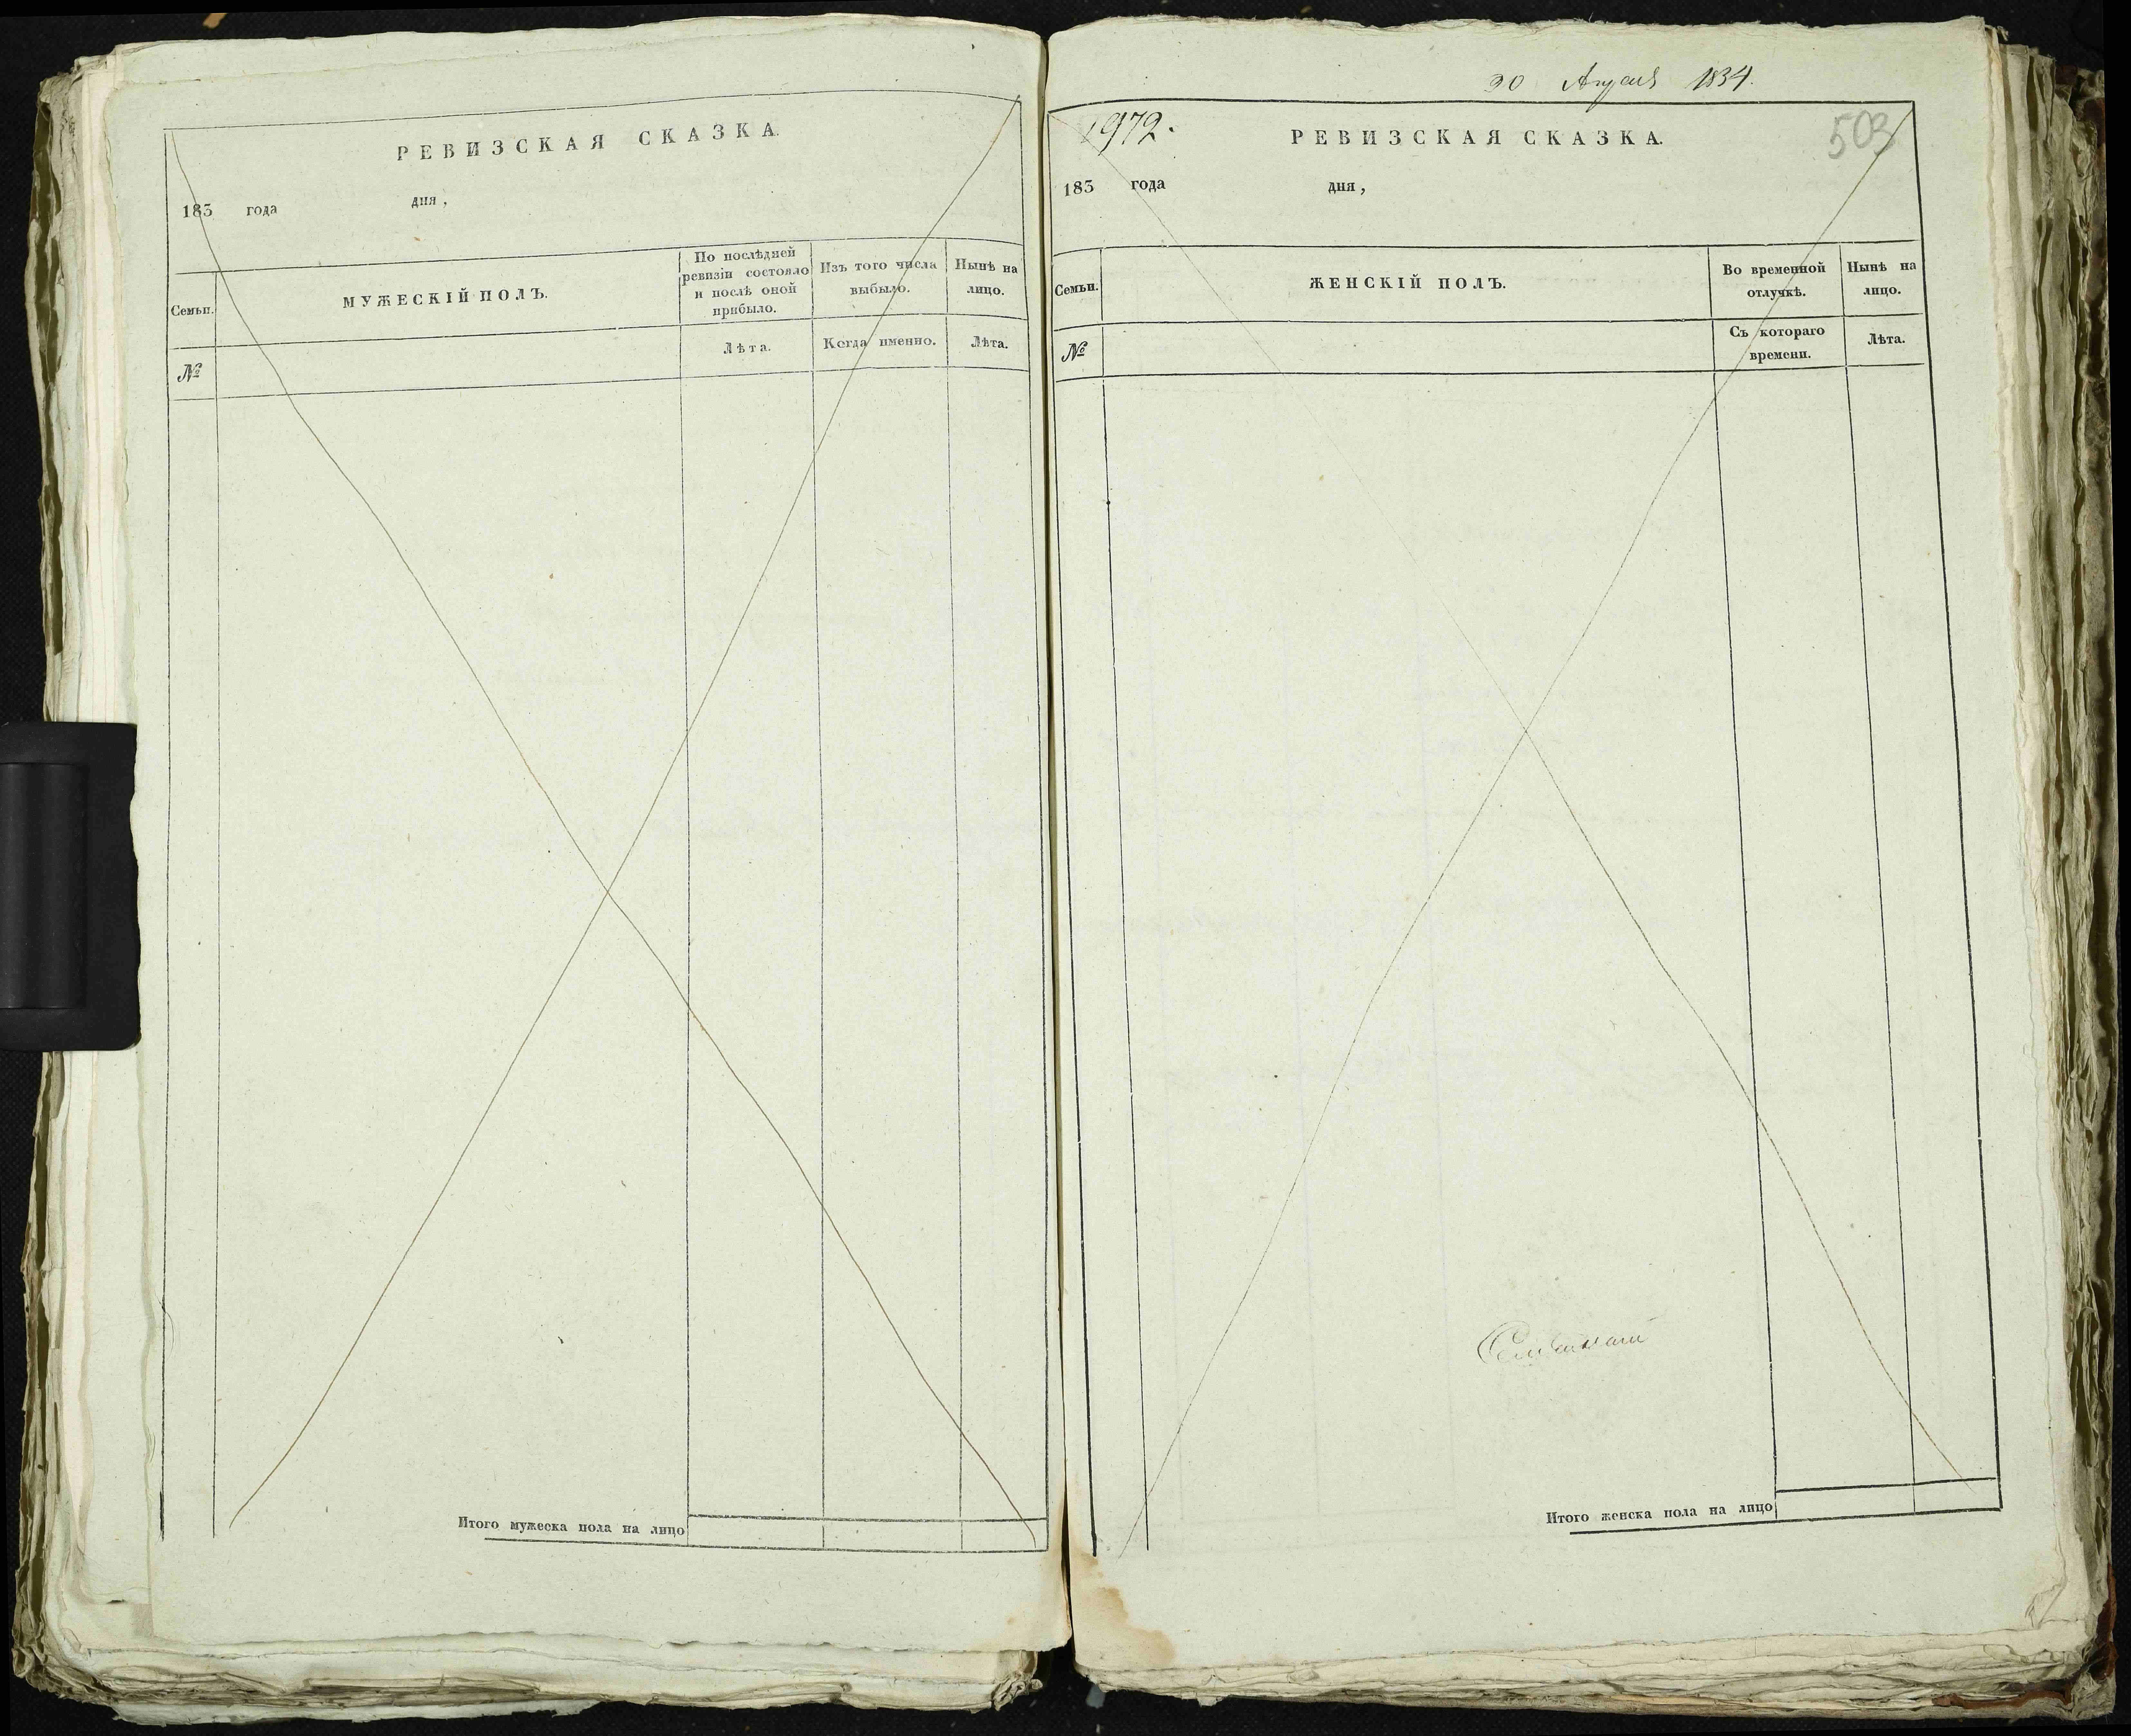 РЕВИЗСКАЯ СКАЗКА.
183 года дня,
Семьи.
МУЖЕСКІЙ ПОЛЪ.
По послѣдней ревизіи состояло и послѣ оной прибыло.
Изъ того числа выбыло.
Нынѣ на лицо.
№
Лѣта.
Когда именно.
Лѣта.
Итого мужеска пола на лицо
1834.
1972.
РЕВИЗСКАЯ СКАЗКА.
503
183 года дня,
Семьи.
ЖЕНСКІЙ ПОЛЪ.
Во временной отлучкѣ.
Нынѣ на лицо.
№
Съ котораго времени.
Лѣта.
Итого женска пола на лицо